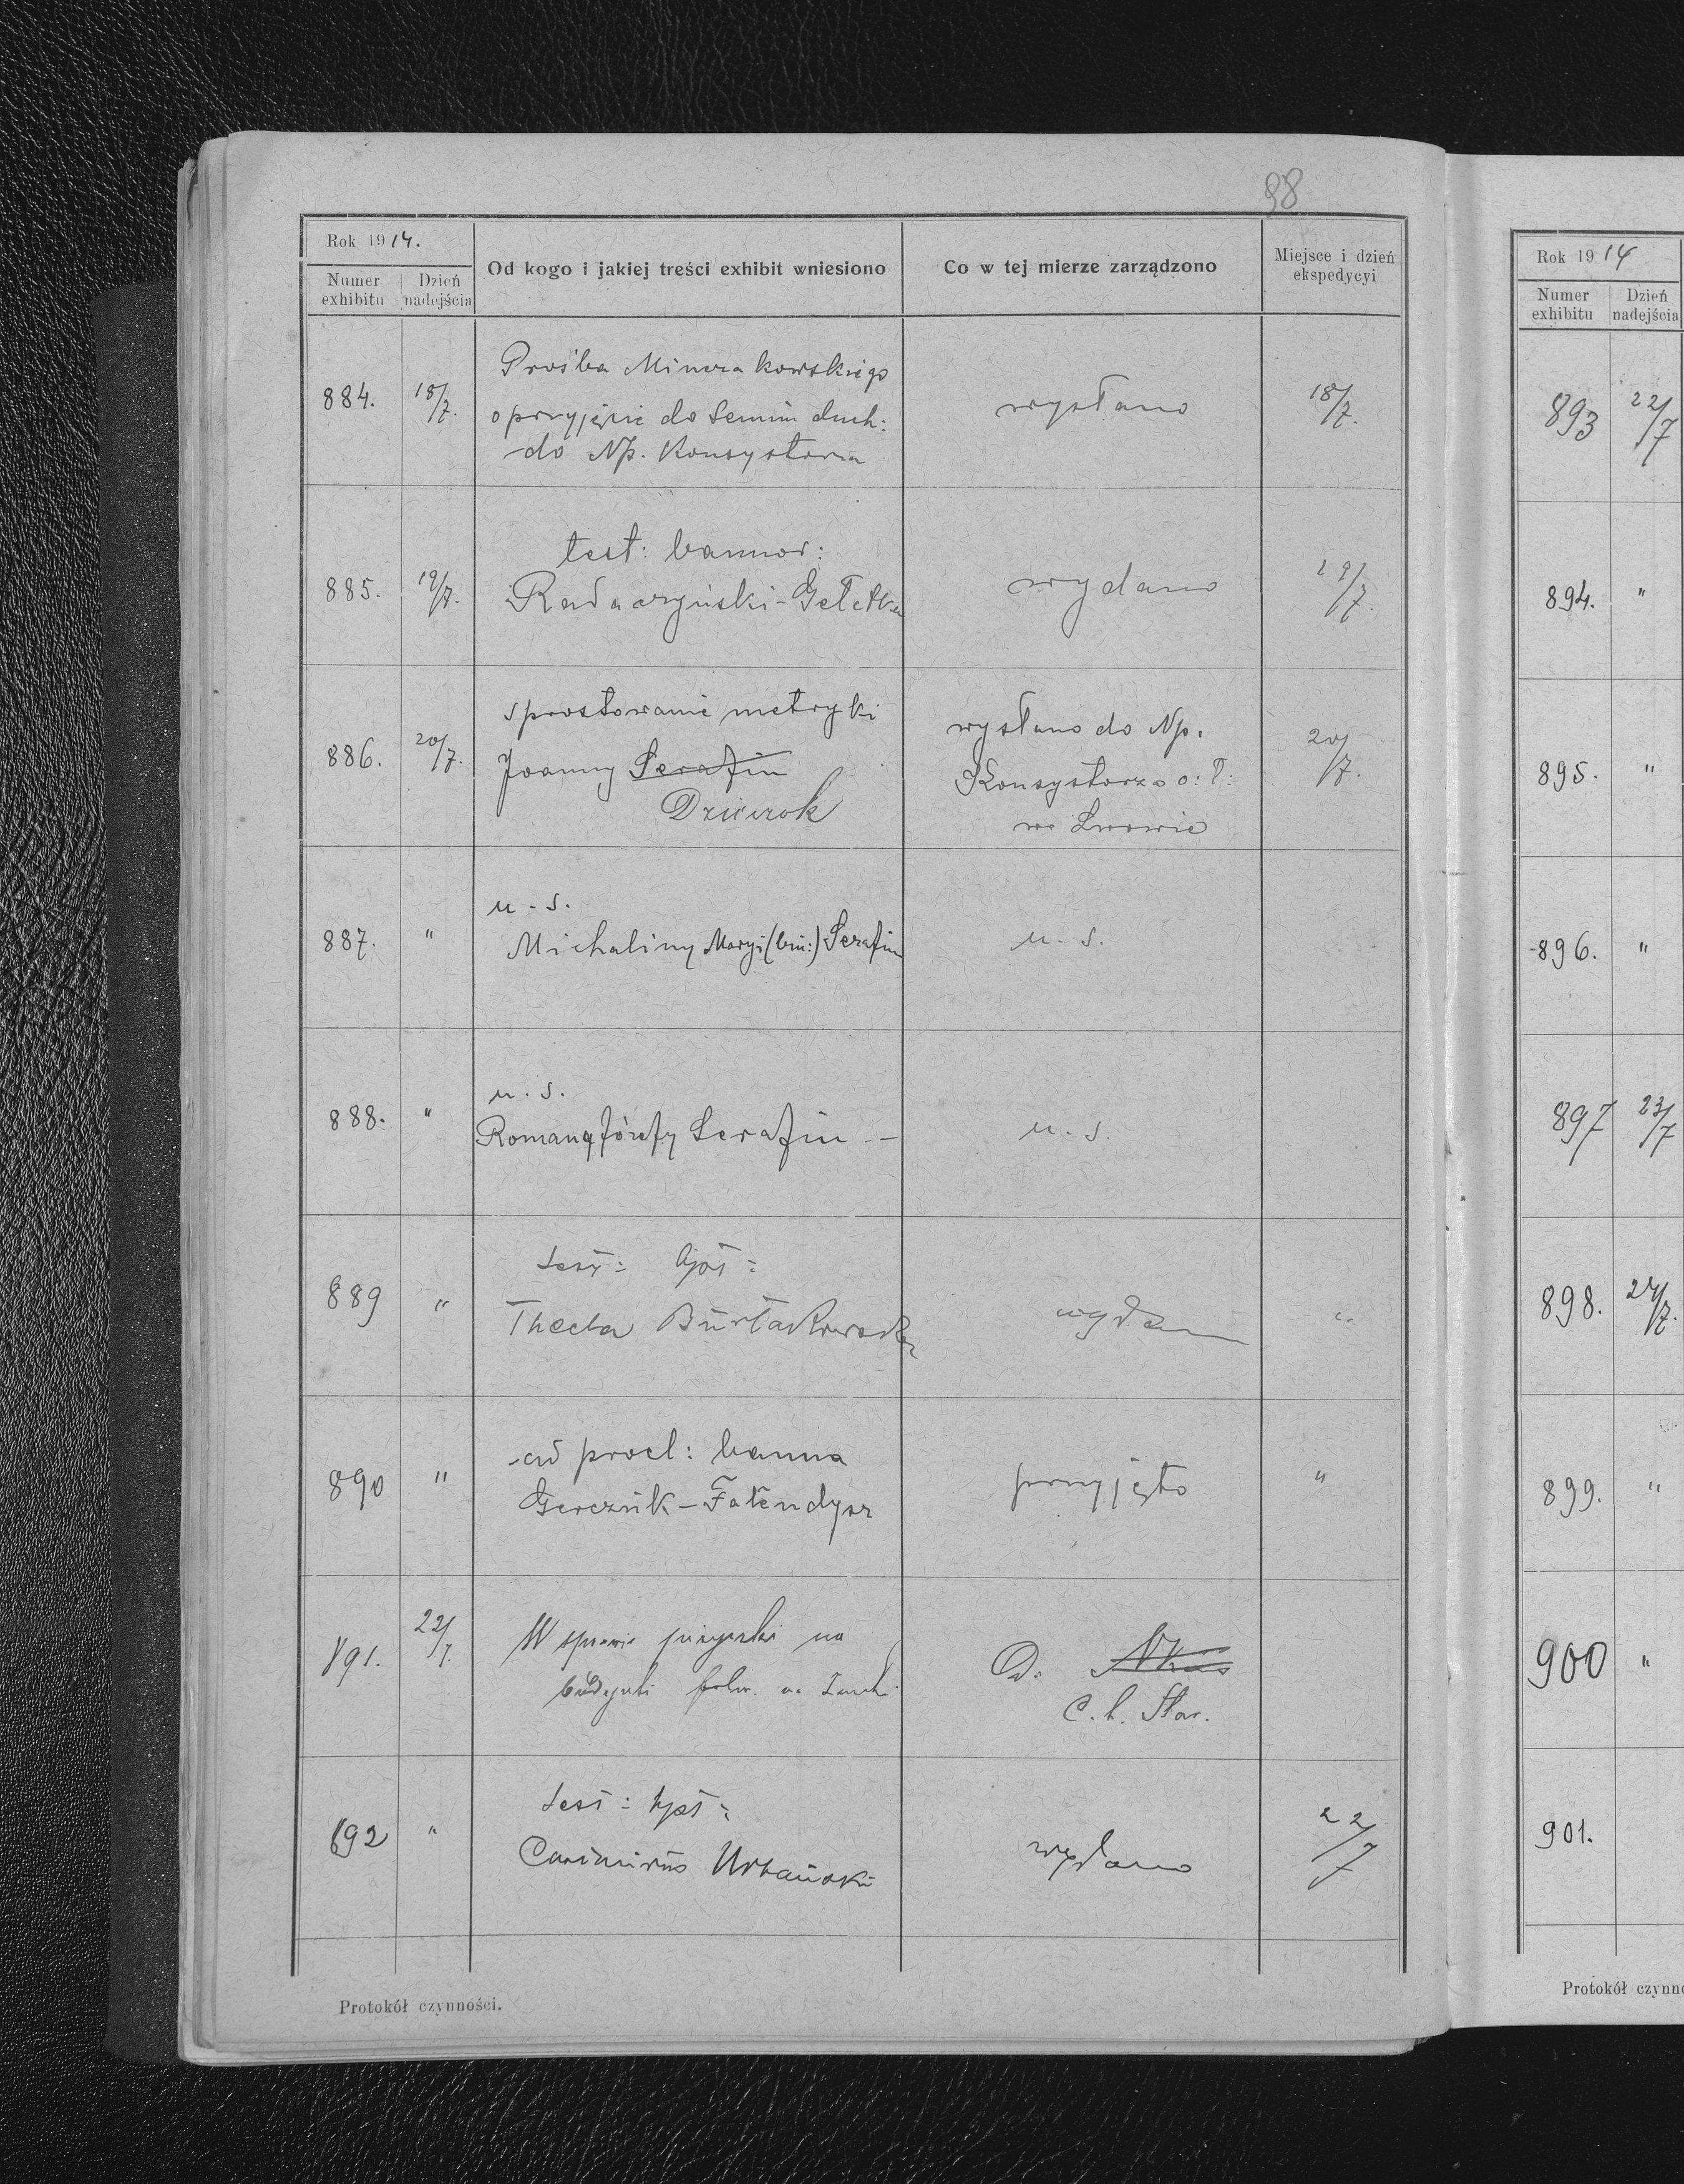 98
Rok 1914.
Numer exhibitu
Dzień nadejścia
Od kogo i jakiej treści exhibit wniesiono
Co w tej mierze zarządzono
Miejsce i dzień ekspedycyi
884. 18/7.
Prośba
o przyjęcie do Semin duch:
do Np. Konsystorza
wysłano
18/7.
885. 19/7.
test: bannor:
wydano
19/7.
886. 20/7.
sprostowanie metryki
Joanny Serafin
wysłano do Np.
Konsystorza o: ł:
we Lwowie
20/7.
887. "
u. s.
Michaliny Maryi (bin:) Serafin
u. s.
888. "
u. s.
Romany Józefy Serafin --
u. s.
889 "
test: bpt:
Thecla
wydano
"
890 "
ad procl: banna
Gerczuk - Falendysz
przyjęto
"
891. 22/7.
W sprawie
na
C. k. Star.
892 "
test: bpt:
Casimirus Urbański
wydano
22/7
Protokół czynności.
Rok 1914
Numer exhibitu
Dzień nadejścia
893 22/7
894. "
895. "
896. "
897 23/7
898. 24/7.
899. "
900 "
901.
Protokół czynno